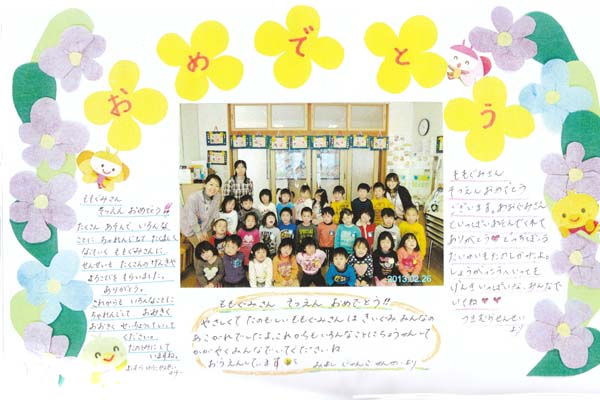 おめでとう
ももぐみさん
そつえん おめでとう!!
たくさん あそんで、いろんな
ことに ちょうせんして たのもし
ももぐみさんに
せんせいも たくさんの げんきや
よろこびを もらいました。
ありがとう。
これからも いろんなことに
ちょうせんして おおきく
おおきく せいちょうしていって
ください。
たのしみにして
いますね。
2013.02.26
ももぐみさん そつえん おめでとう!!
やさしくて たのもしい ももぐみさんは、きいぐみ みんなの
あこがれでした。これからもいろんなことにちょうせんして
かがやくみんなでいてくださいね
おうえんしています
せんせいより
ももぐみさん
そつえん おめでとう
ございます。あおぐみさん
といっぱいあそんでくれて
ありがとう♥どっちぼーる
たいかいもたのしかったよ。
しょうがっこうへいっても
げんきいっぱいな、みんなで
いてね♥♥
せんせい
より